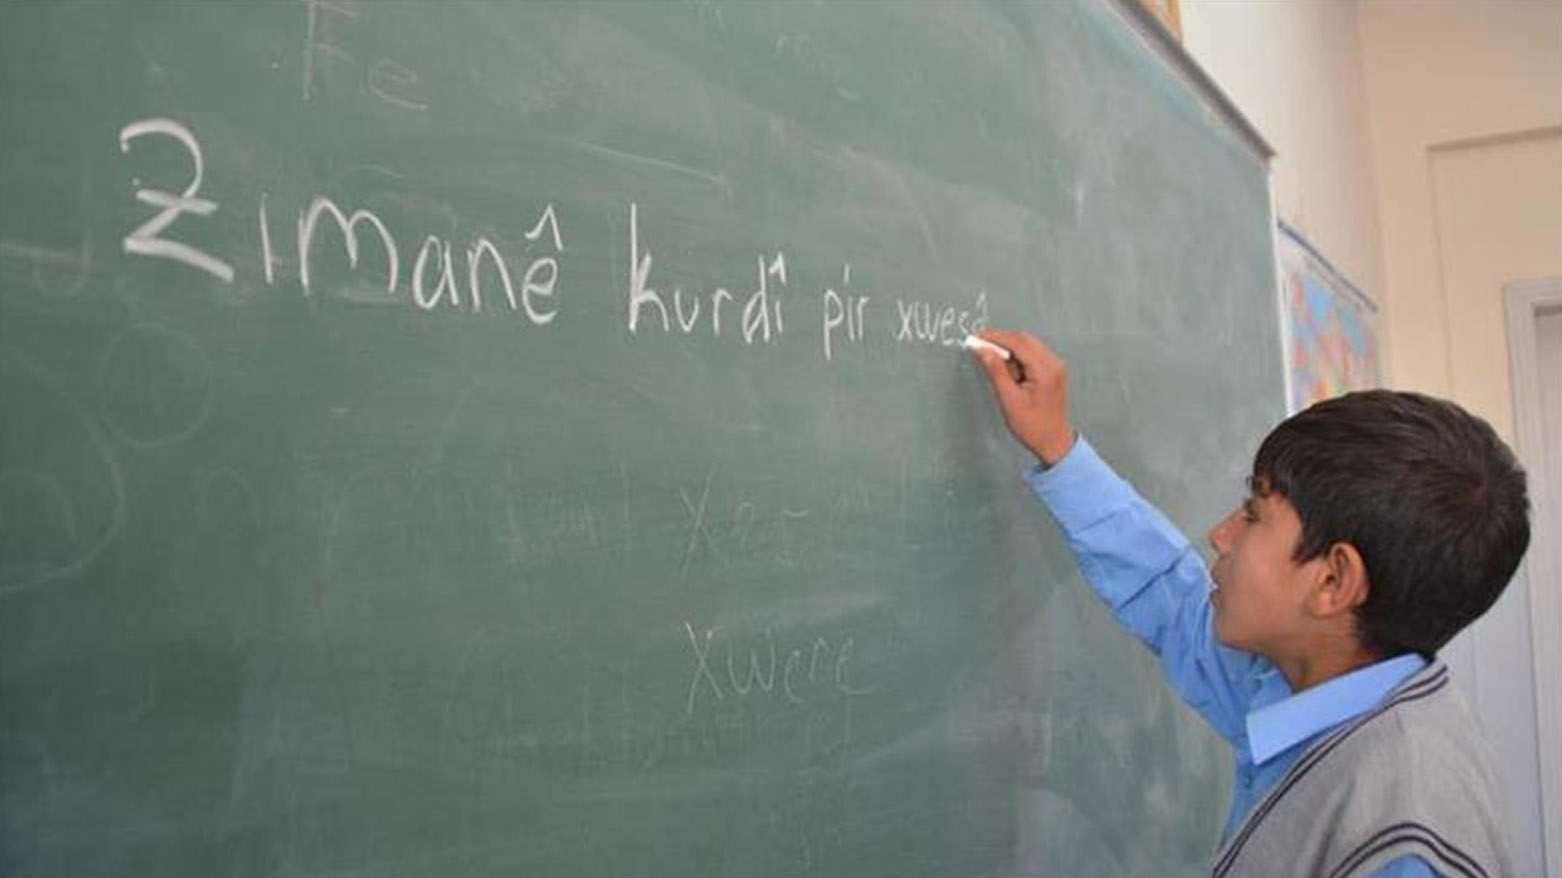 Fe
Zimanê kurdî pir xwesê
Xwere